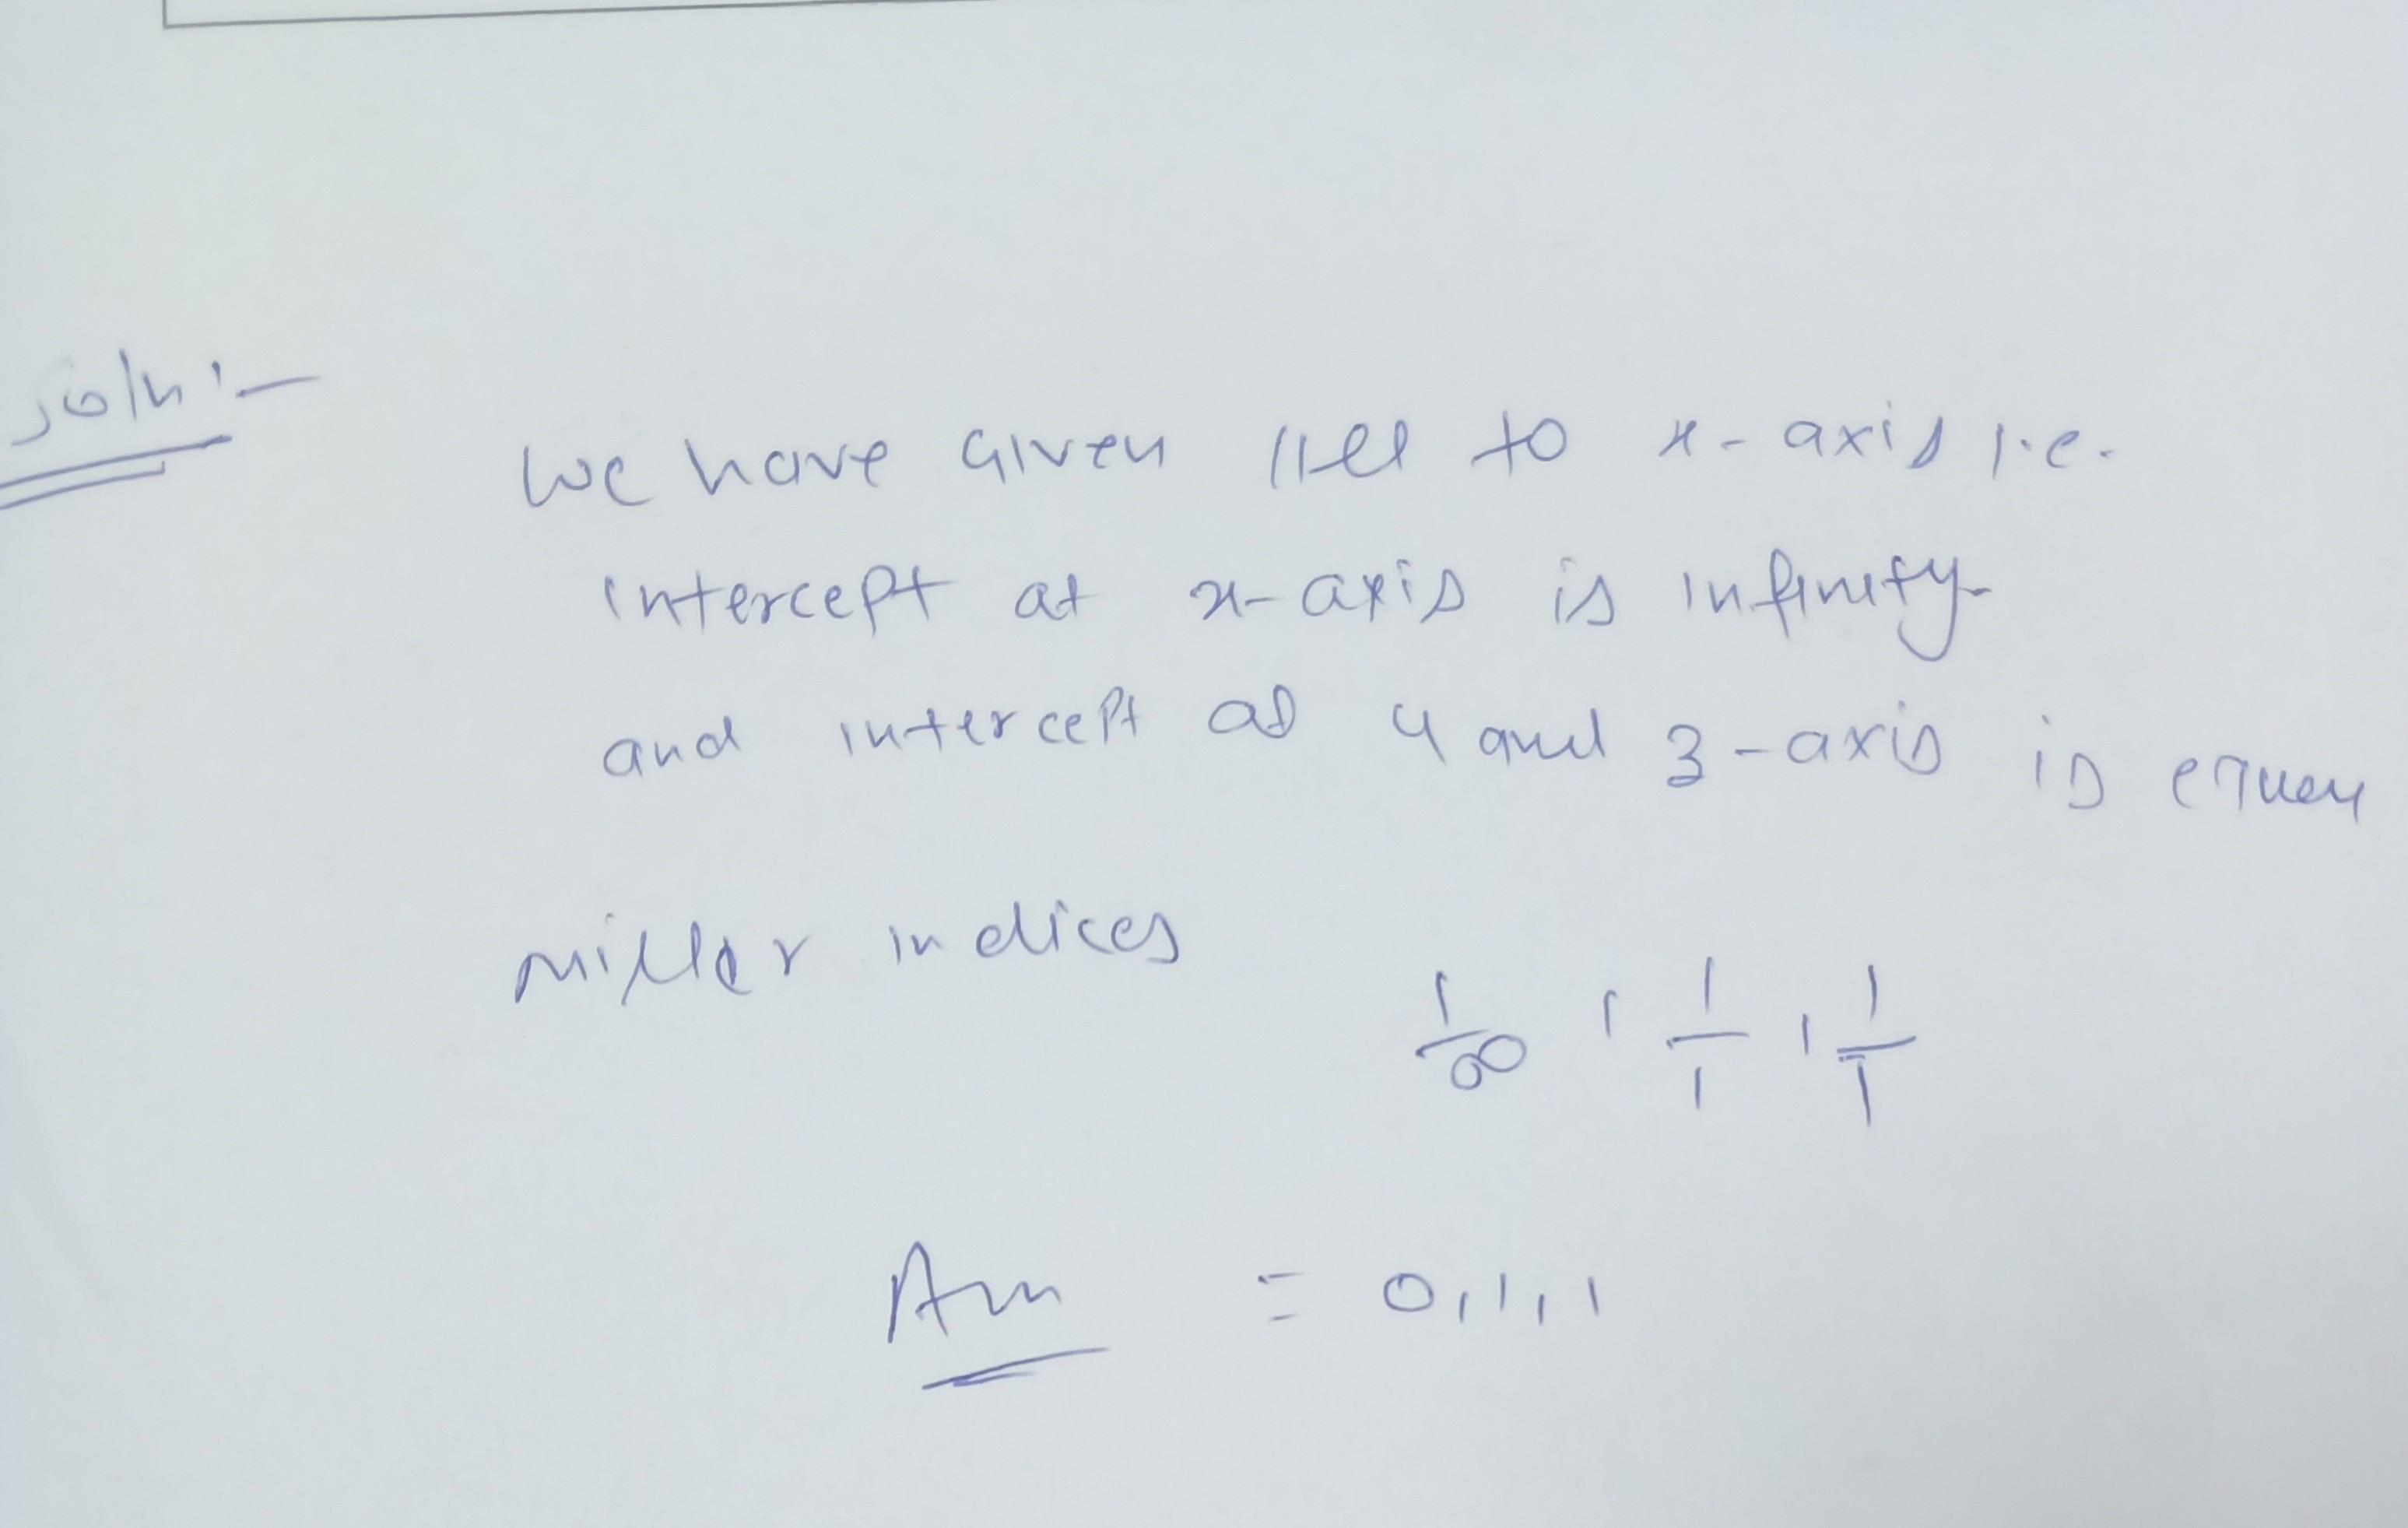 Soln :-
We have Given ||el to x-axis i.e.
intercept at x-axis is infinity
and intercept at y and z-axis is equal
Miller indices
1/∞ , 1/1 , 1/1
Ans = 0,1,1